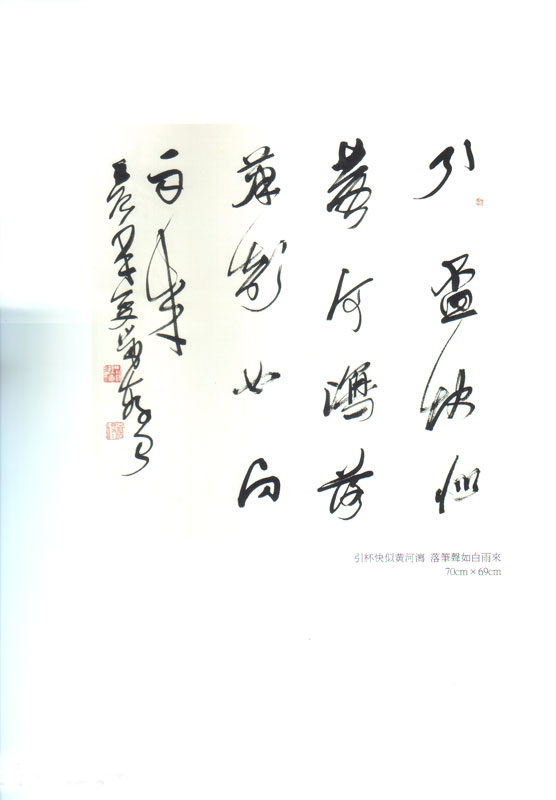 引杯快似
黄河瀉落
筆聲如白
雨來
引杯快似黄河瀉 落筆聲如白雨來
70cm×69cm